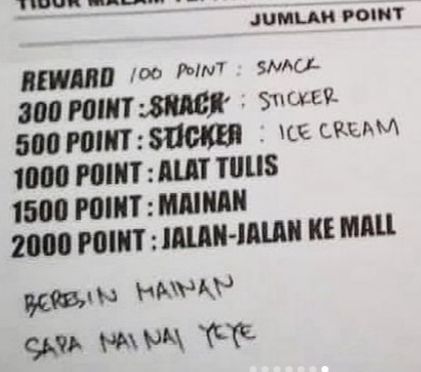 TIDUR MALAM
JUMLAH POINT
REWARD 100 POINT : SNACK
300 POINT : SNACK : STICKER
500 POINT : STICKER : ICE CREAM
1000 POINT : ALAT TULIS
1500 POINT : MAINAN
2000 POINT : JALAN-JALAN KE MALL
BERESIN MAINAN
SAPA NAI NAI YEYE